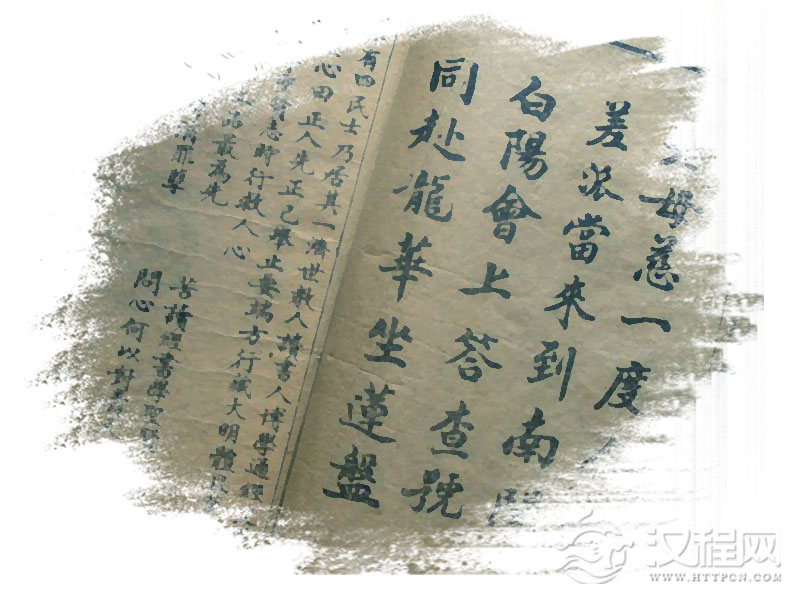 母慈一度
差派當來到南
白陽會上答查號
同赴龍華坐蓮盤
有四民士乃居其一濟世救人讀書人博學通經
心田正人先正己舉止要端方行藏大明體
志時行救人心
品最為先
罪尊
苦讀經書學聖
問心何以對
汉程网
WWW.HTTPCN.COM